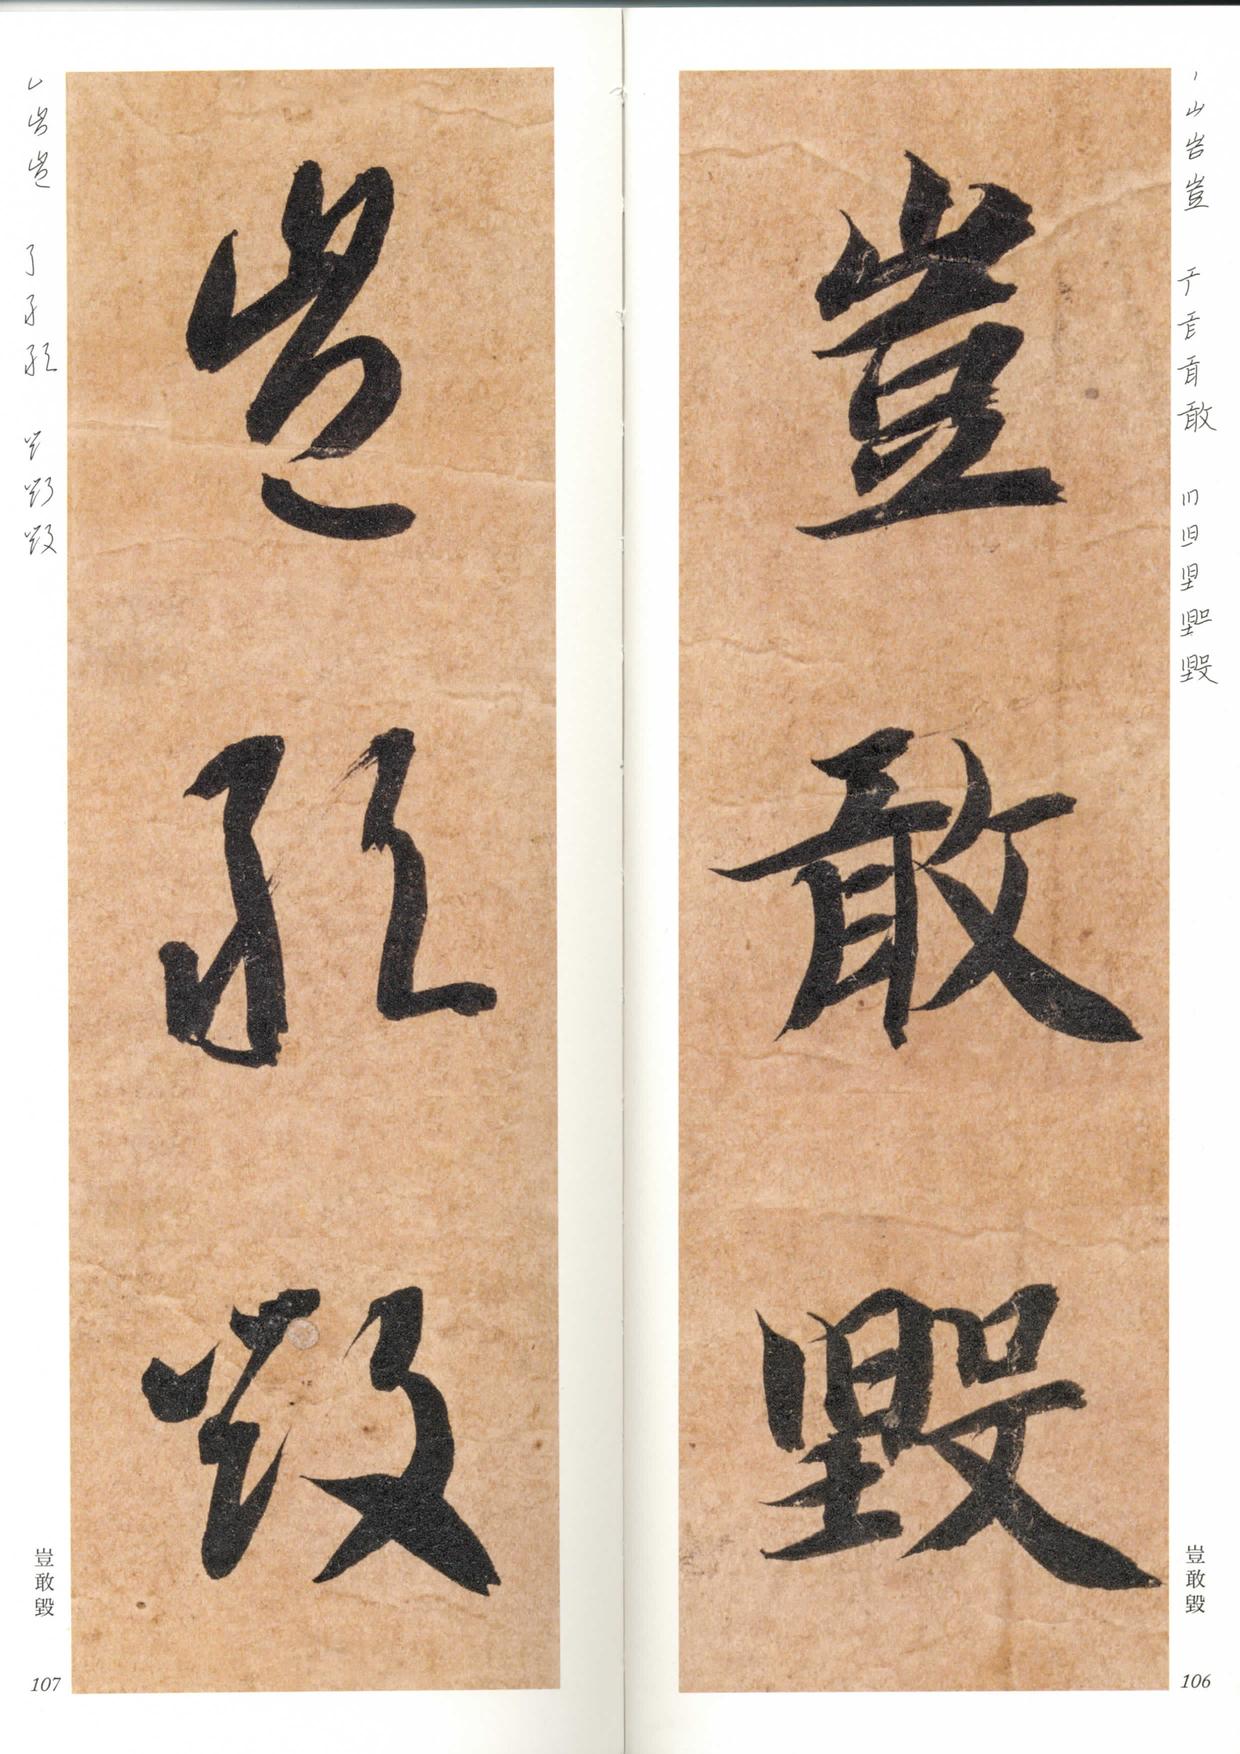 豈敢毀
豈敢毀
106
豈敢毀
豈敢毀
107